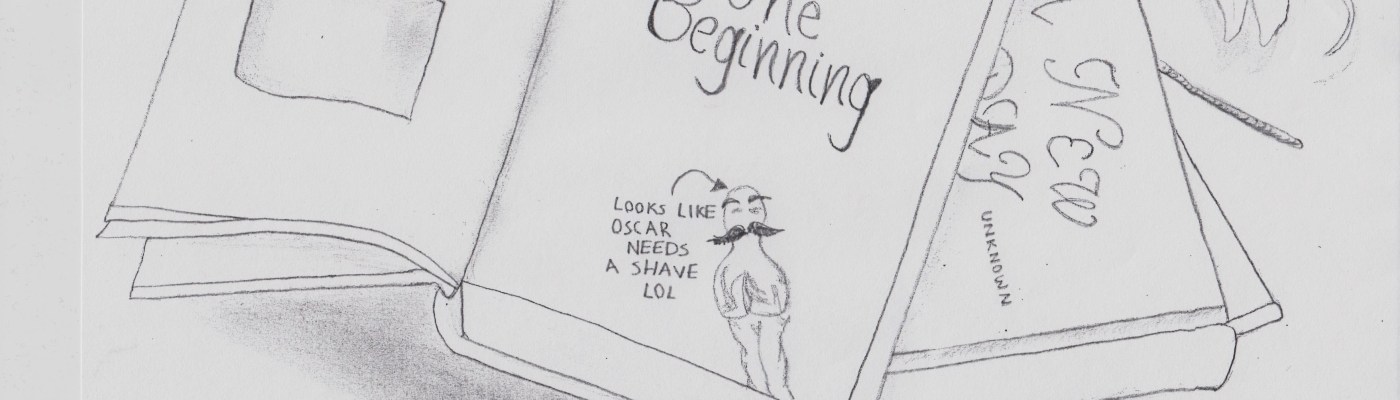 Beginning
LOOKS LIKE
OSCAR
NEEDS
A SHAVE
LOL
NEW
UNKNOWN